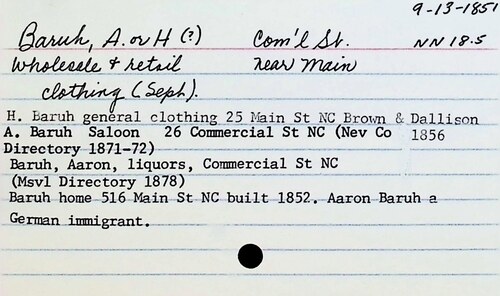 9-13-1851
Baruh, A. or H (?) Com'l St. NN 18.5
Wholesale & retail near Main
clothing (Seph).
H. Baruh general clothing 25 Main St NC Brown & Dallison
A. Baruh Saloon 26 Commercial St NC (Nev Co 1856
Directory 1871-72)
Baruh, Aaron, liquors, Commercial St NC
(Msvl Directory 1878)
Baruh home 516 Main St NC built 1852. Aaron Baruh a
German immigrant.